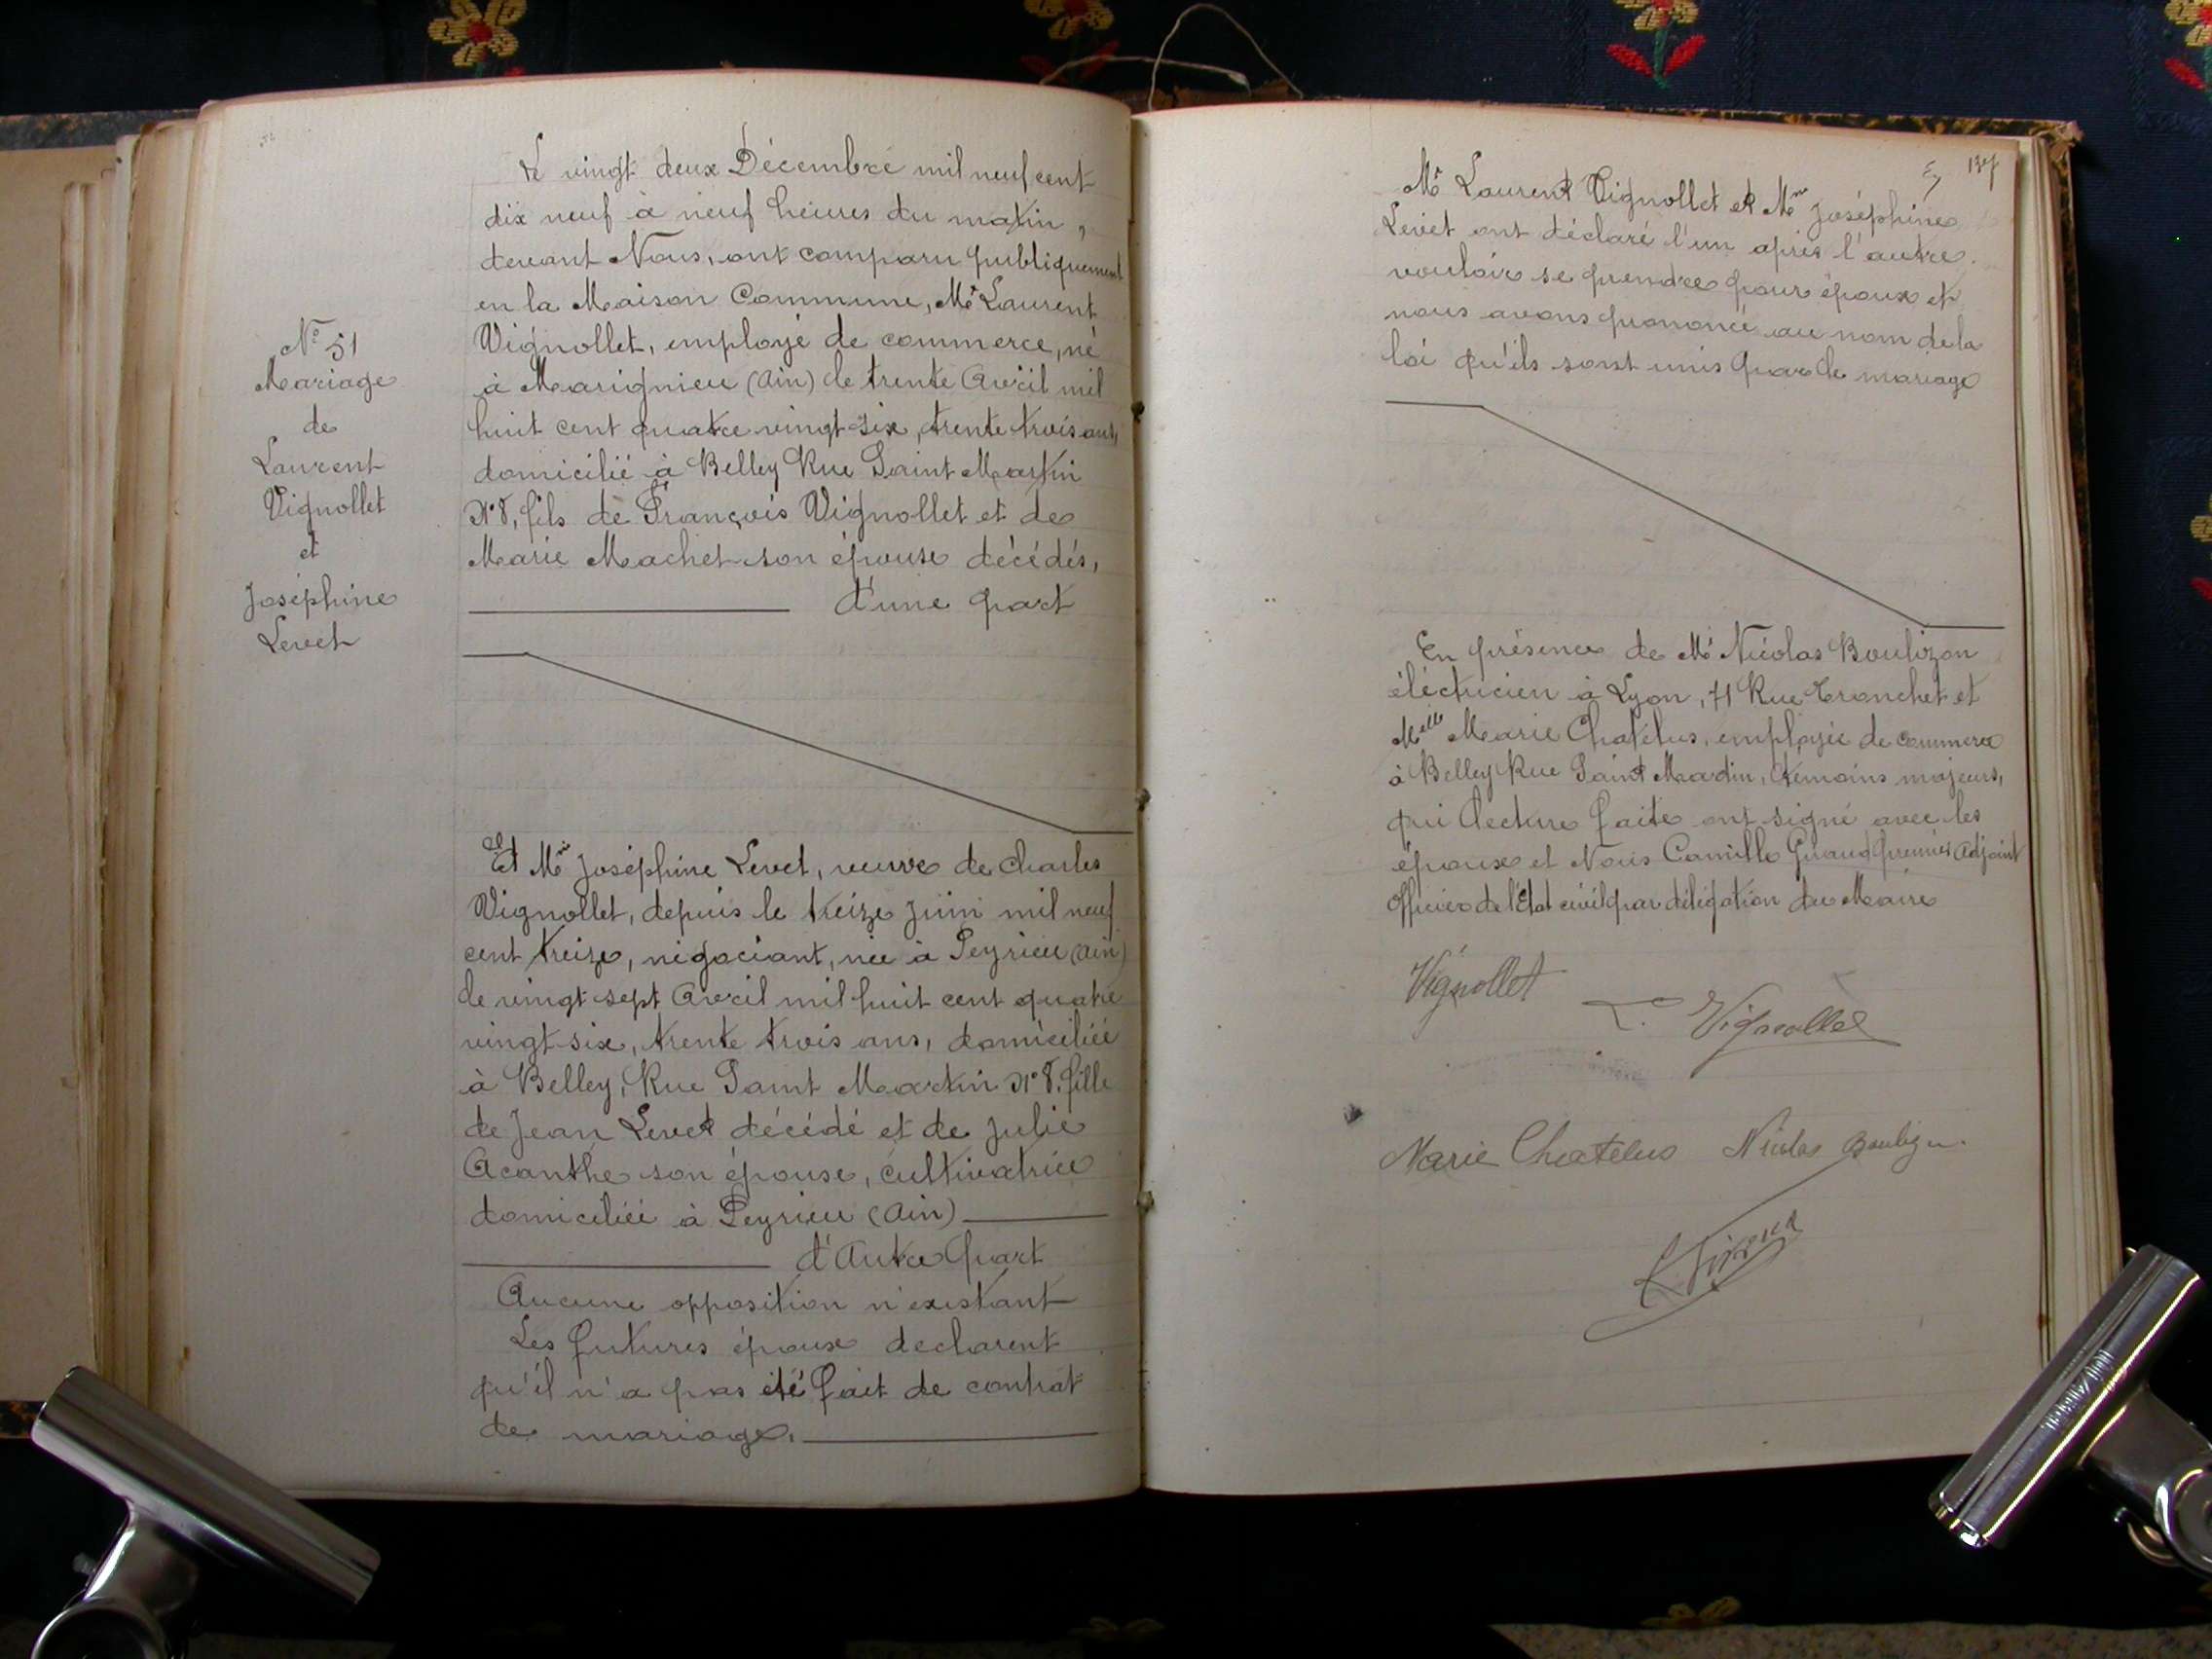 N° 51
Mariage
de
Laurent
Vignollet
et
Joséphine
Levet
Le vingt deux Décembre mil neuf cent
dix neuf à neuf heures du matin,
devant Nous, ont comparu publiquement
en la Maison Commune, Mr Laurent
Vignollet, employé de commerce, né
à Marignieu (Ain) le trente Avril mil
huit cent quatre vingt six, trente trois ans,
domicilié à Belley Rue Saint Martin
N° 8, fils de François Vignollet et de
Marie Machet son épouse décédés,
d'une part
Et Mme Joséphine Levet, veuve de Charles
Vignollet, depuis le treize juin mil neuf
cent treize, négociant, née à Peyrieu (Ain)
le vingt sept Avril mil huit cent quatre
vingt six, trente trois ans, domiciliée
à Belley, Rue Saint Martin N° 8. fille
de Jean Levet décédé et de Julie
Acanthe son épouse, cultivatrice
domiciliée à Peyrieu (Ain)
d'Autre part
Aucune opposition n'existant
Les futures époux declarent
qu'il n'a pas été fait de contrat
de mariage.
137
Mr Laurent Vignollet et Mme Joséphine
Levet ont déclaré l'un après l'autre.
vouloir se prendre pour époux et
nous avons prononcé au nom de la
loi qu'ils sont unis par le mariage
En présence de Mr Nicolas Boulizon
éléctricien à Lyon, 71 Rue Tronchet et
Melle Marie Chatélus, employée de commerce
à Belley Rue Saint Martin, témoins majeurs,
qui lecture faite ont signé avec les
époux et Nous Camille Giraud premier Adjoint
Officier de l'Etat civil par délégation du Maire
Vignollet
L. Vignollet
Marie Chatelus Nicolas Boulizon
C. Giraud